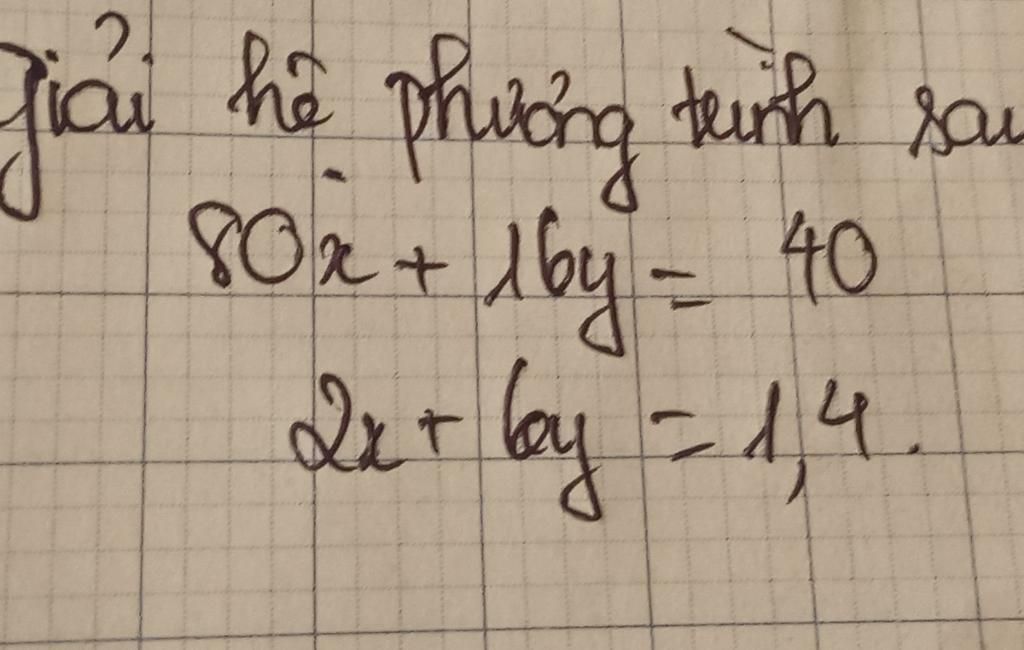 giải hệ phương trình sau
80x + 16y = 40
2x + 6y = 1,4.